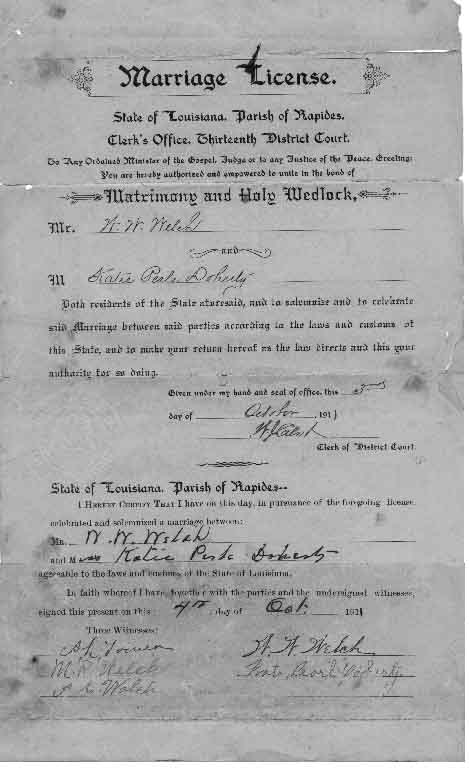 Marriage License.
State of Louisiana. Parish of Rapides.
Clerk's Office. Thirteenth District Court.
To Any Ordained Minister of the Gospel, Judge or to any Justice of the Peace, Greeting:
You are hereby authorized and empowered to unite in the bond of
Matrimony and Holy Wedlock,
Mr. W. W. Welch
and
M Katie Perle Doherty
Both residents of the State aforesaid, and to solemnize and to celebrate
said Marriage between said parties according to the laws and customs of
this State, and to make your return hereof as the law directs and this your
authority for so doing.
Given under my hand and seal of office, this
day of October 1911
Clerk of District Court.
State of Louisiana. Parish of Rapides--
I HEREBY CERTIFY THAT I have on this day, in pursuance of the foregoing license,
celebrated and solemnized a marriage between:
Mr. W. W. Welch
and Miss Katie Perle Doherty
agreeable to the laws and customs of the State of Louisiana.
In faith whereof I have, together with the parties and the undersigned witnesses,
signed this present on this 4th day of Oct. 1911
Three Witnesses:
W. W. Welch
M. R. Welch
Welch